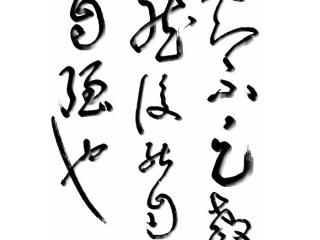 知不足教
然後能自
自強也